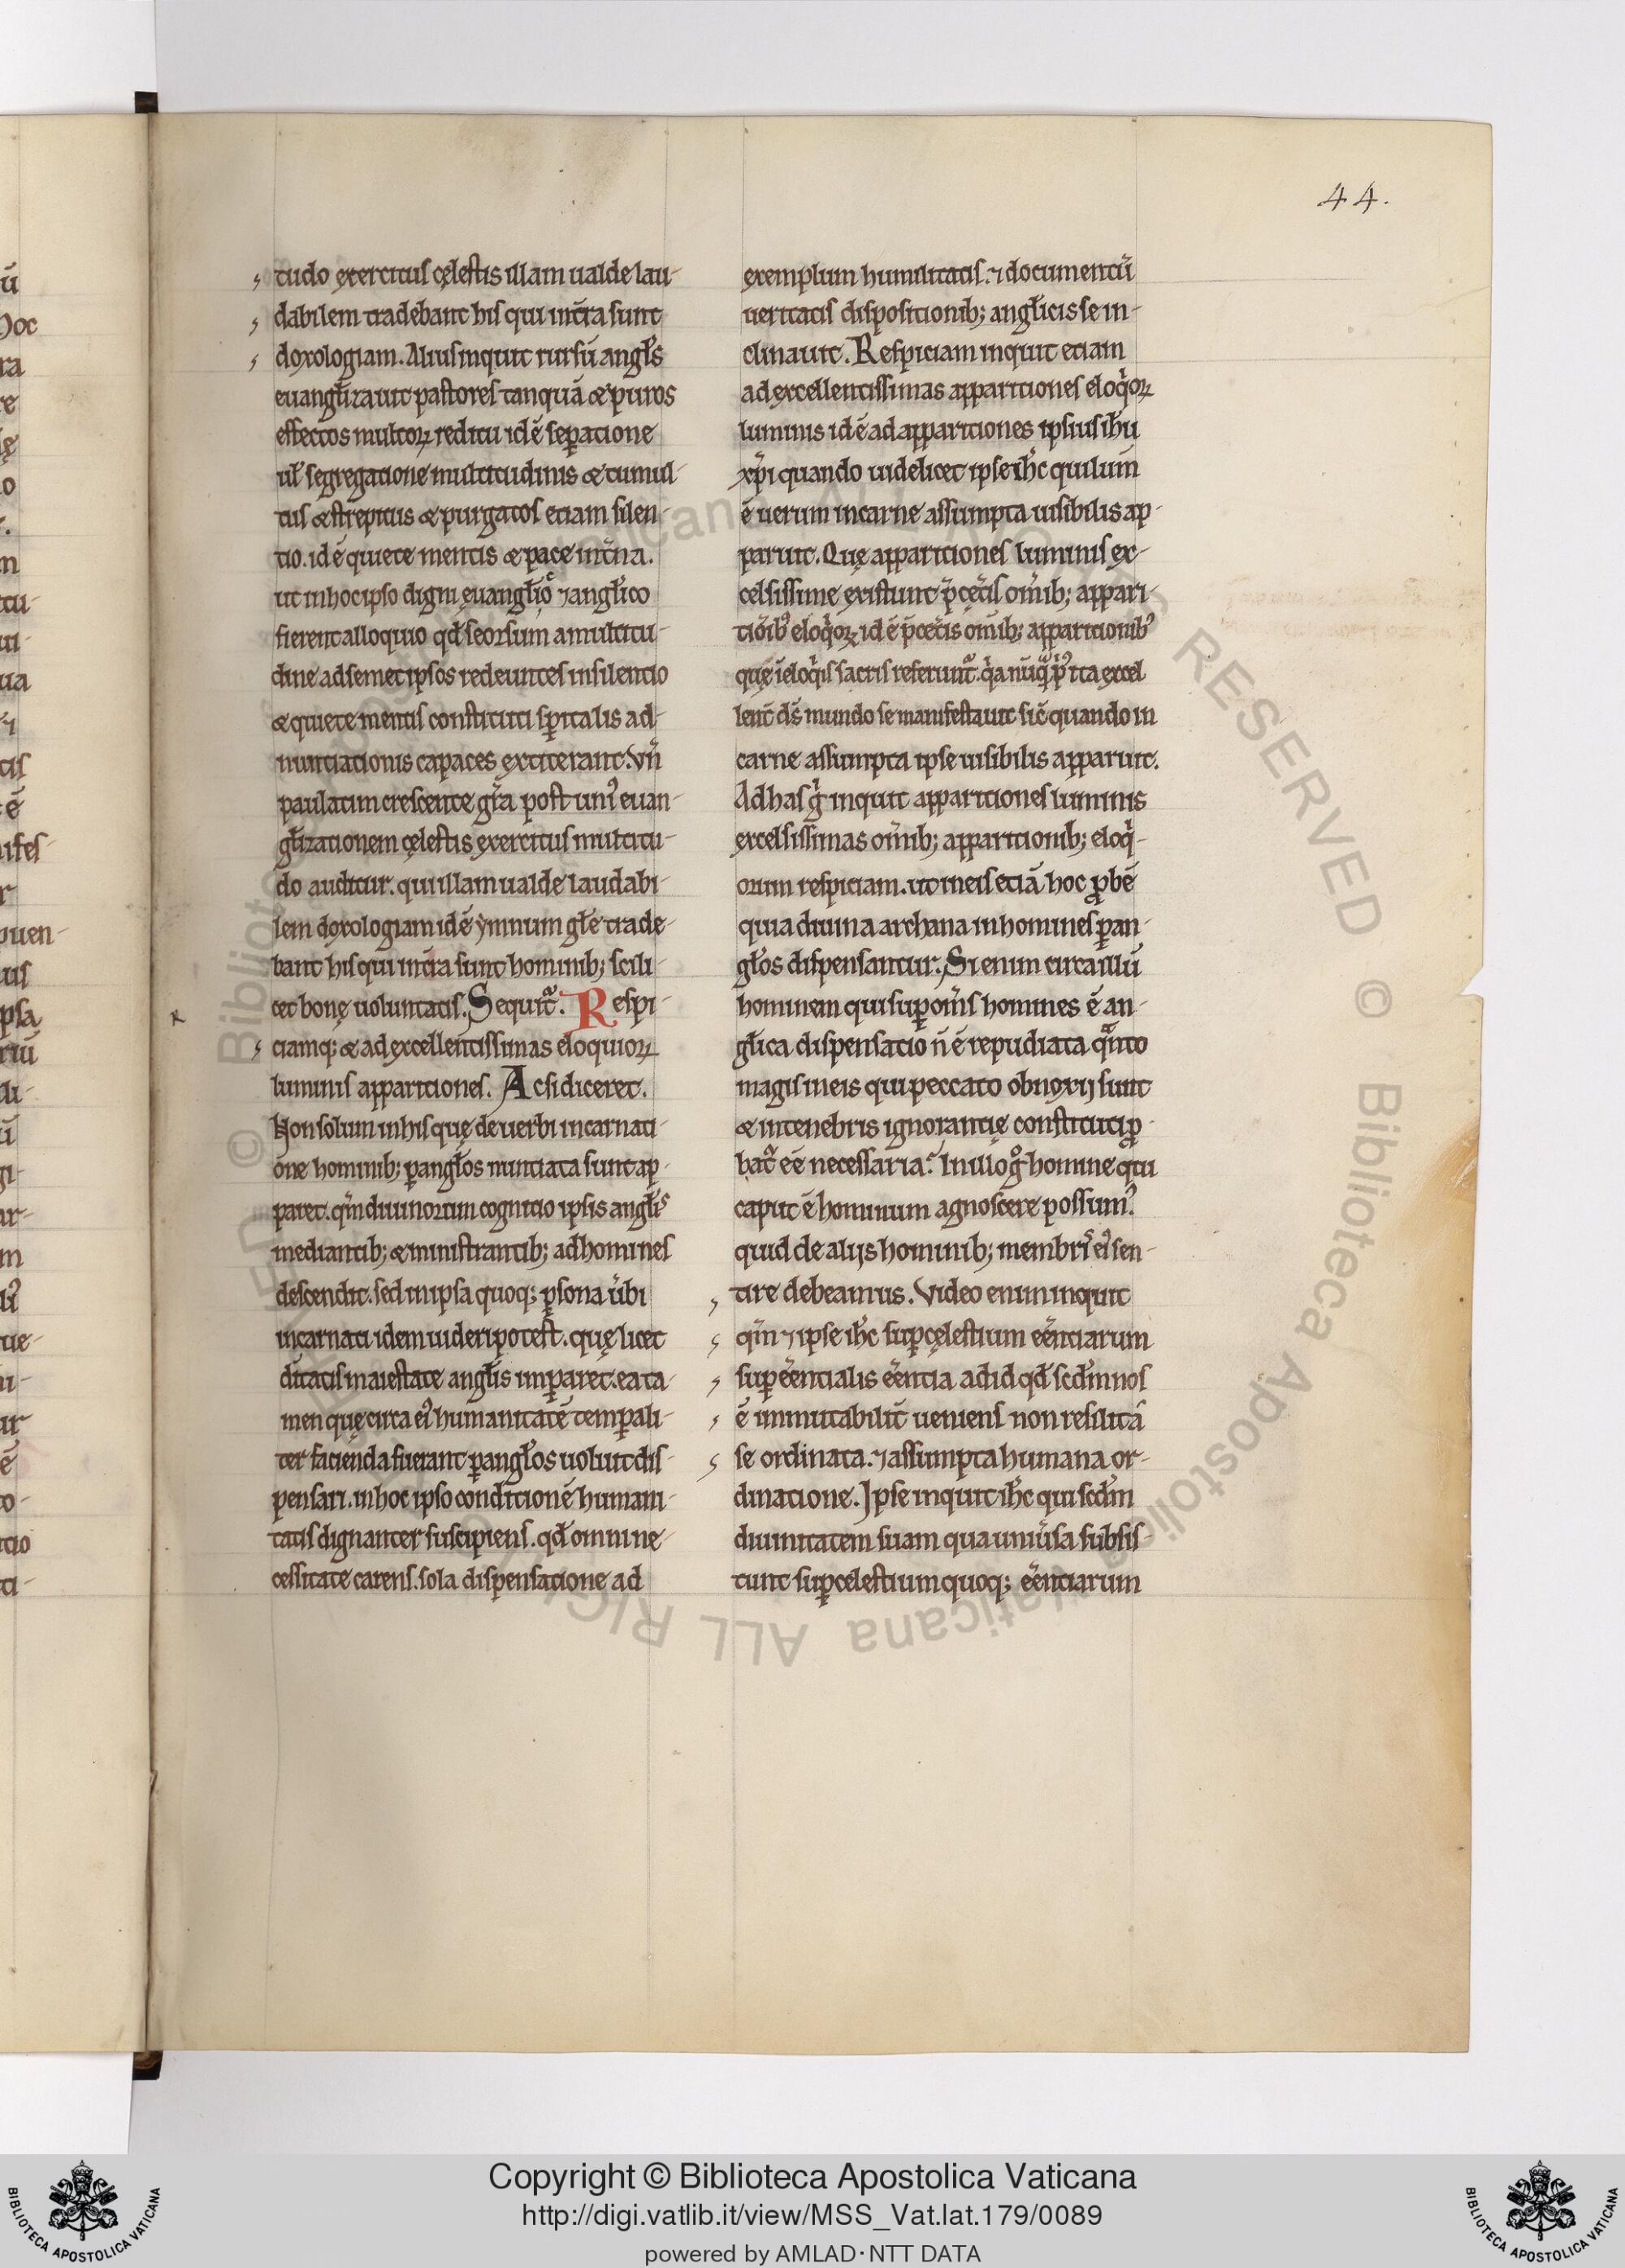 44.
tudo exercitus cęlestis illam ualde lau-
dabilem tradebant his qui int̄ra sunt
doxologiam. Alius inquit rursū angl̄s
euangl̄izauit pastores tanquā & puros
effectos multoꝝ reditu id ē sep̱atione
ul̄ segregatione multitudinis & tumul-
tus & strepitus & purgatos etiam silen-
tio. id ē quiete mentis & pace int̄na.
ut in hoc ipso digni ęuangl̄io ⁊ angl̄ico
fierent alloquio qd̄ seorsum a multitu-
dine ad semet ipsos redeuntes in silentio
& quiete mentis constituti sp̄italis ad-
nuntiationis capaces extiterant. Vn̄
paulatim crescente gr̄a post uniꝰ euan-
gl̄izationem cęlestis exercitus multitu-
do auditur. qui illam ualde laudabi-
lem doxologiam id ē ymnum gl̄e trade-
bant his qui int̄ra sunt hominib; scili-
cet bonę uoluntatis. Sequit̄. Respi-
ciamq; & ad excellentissimas eloquioꝝ
luminis apparitiones. Ac si diceret.
Non solum in his quę de uerbi incarnati-
one hominib; ꝑ angl̄os nuntiata sunt ap-
paret. qm̄ diuinorum cognitio ipsis angl̄is
mediantib; & ministrantib; ad homines
descendit. sed in ipsa quoq; ꝑsona ūbi
incarnati idem uideri potest. quę licet
diītatis maiestate angl̄is imꝑaret. ea ta-
men quę circa eiꝰ humanitatē temꝑali-
ter facienda fuerant ꝑ angl̄os uoluit dis-
pensari. in hoc ipso conditionē humani-
tatis dignanter suscipiens. qd̄ omni ne-
cessitate carens. sola dispensatione ad
exemplum humilitatis. ⁊ documentū
ueritatis dispositionib; angl̄icis se in-
clinauit. Respiciam inquit etiam
ad excellentissimas apparitiones eloq̄oꝝ
luminis id ē ad apparitiones ipsius ih̄u
xp̄i quando uidelicet ipse ih̄c qui lum̄
ē uerum in carne assumpta uisibilis ap-
paruit. Quę apparitiones luminis ex-
celsissime existunt p̄ cęt̄is om̄ib; appari-
tiōibꝰ eloq̄oꝝ id ē p̄ cet̄is om̄ib; apparitionibꝰ
quę ī eloq̄is sacris referunt̄. q̄a nūq̄ pꝰ ita excel
lent̄ ds̄ mundo se manifestauit sic̄ quando in
carne assumpta ipse uisibilis apparuit.
Ad has ḡ inquit apparitiones luminis
excelsissimas om̄ib; apparitionib; eloq̄-
orum respiciam. ut in eis etiā hoc ꝓbē
quia diuina archana in homines ꝑ an-
gl̄os dispensantur. Si enim circa illū
hominem qui suꝑ om̄s homines ē an-
gl̄ica dispensatio n̄ ē repudiata q̄nto
magis in eis qui peccato obnoxij sunt
& in tenebris ignorantię constituti ꝓ-
bat̄ eē necessaria. In illo gͦ homine qui
caput ē hominum agnoscere possumꝰ
quid de alijs hominib; membris eiꝰ sen-
tire debeamus. Video enim inquit
qm̄ ⁊ ipse ih̄c suꝑcęlestium eēntiarum
suꝑeēntialis eēntia ad id qd̄ scd̄m nos
ē immutabilit̄ ueniens non resilit a
se ordinata. ⁊ assumpta humana or-
dinatione. Ipse inquit ih̄c qui scd̄m
diuinitatem suam qua uniūsa subsis-
tunt suꝑcelestium quoq; eēntiarum
ū
hoc
ra
Copyright © Biblioteca Apostolica Vaticana
http://digi.vatlib.it/view/MSS_Vat.lat.179/0089
powered by AMLAD·NTT DATA
BIBLIOTECA APOSTOLICA VATICANA
BIBLIOTECA APOSTOLICA VATICANA